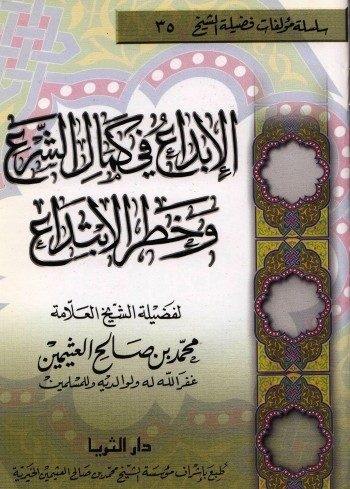 سلسلة مؤلفات فضيلة الشيخ ٣٥
الإبداع في كمال الشرع
وخطر الابتداع
لفضيلة الشيخ العلامة
محمد بن صالح العثيمين
غفر الله له ولوالديه وللمسلمين
دار الثريا
طبع بإشراف مؤسسة الشيخ محمد بن صالح العثيمين الخيرية